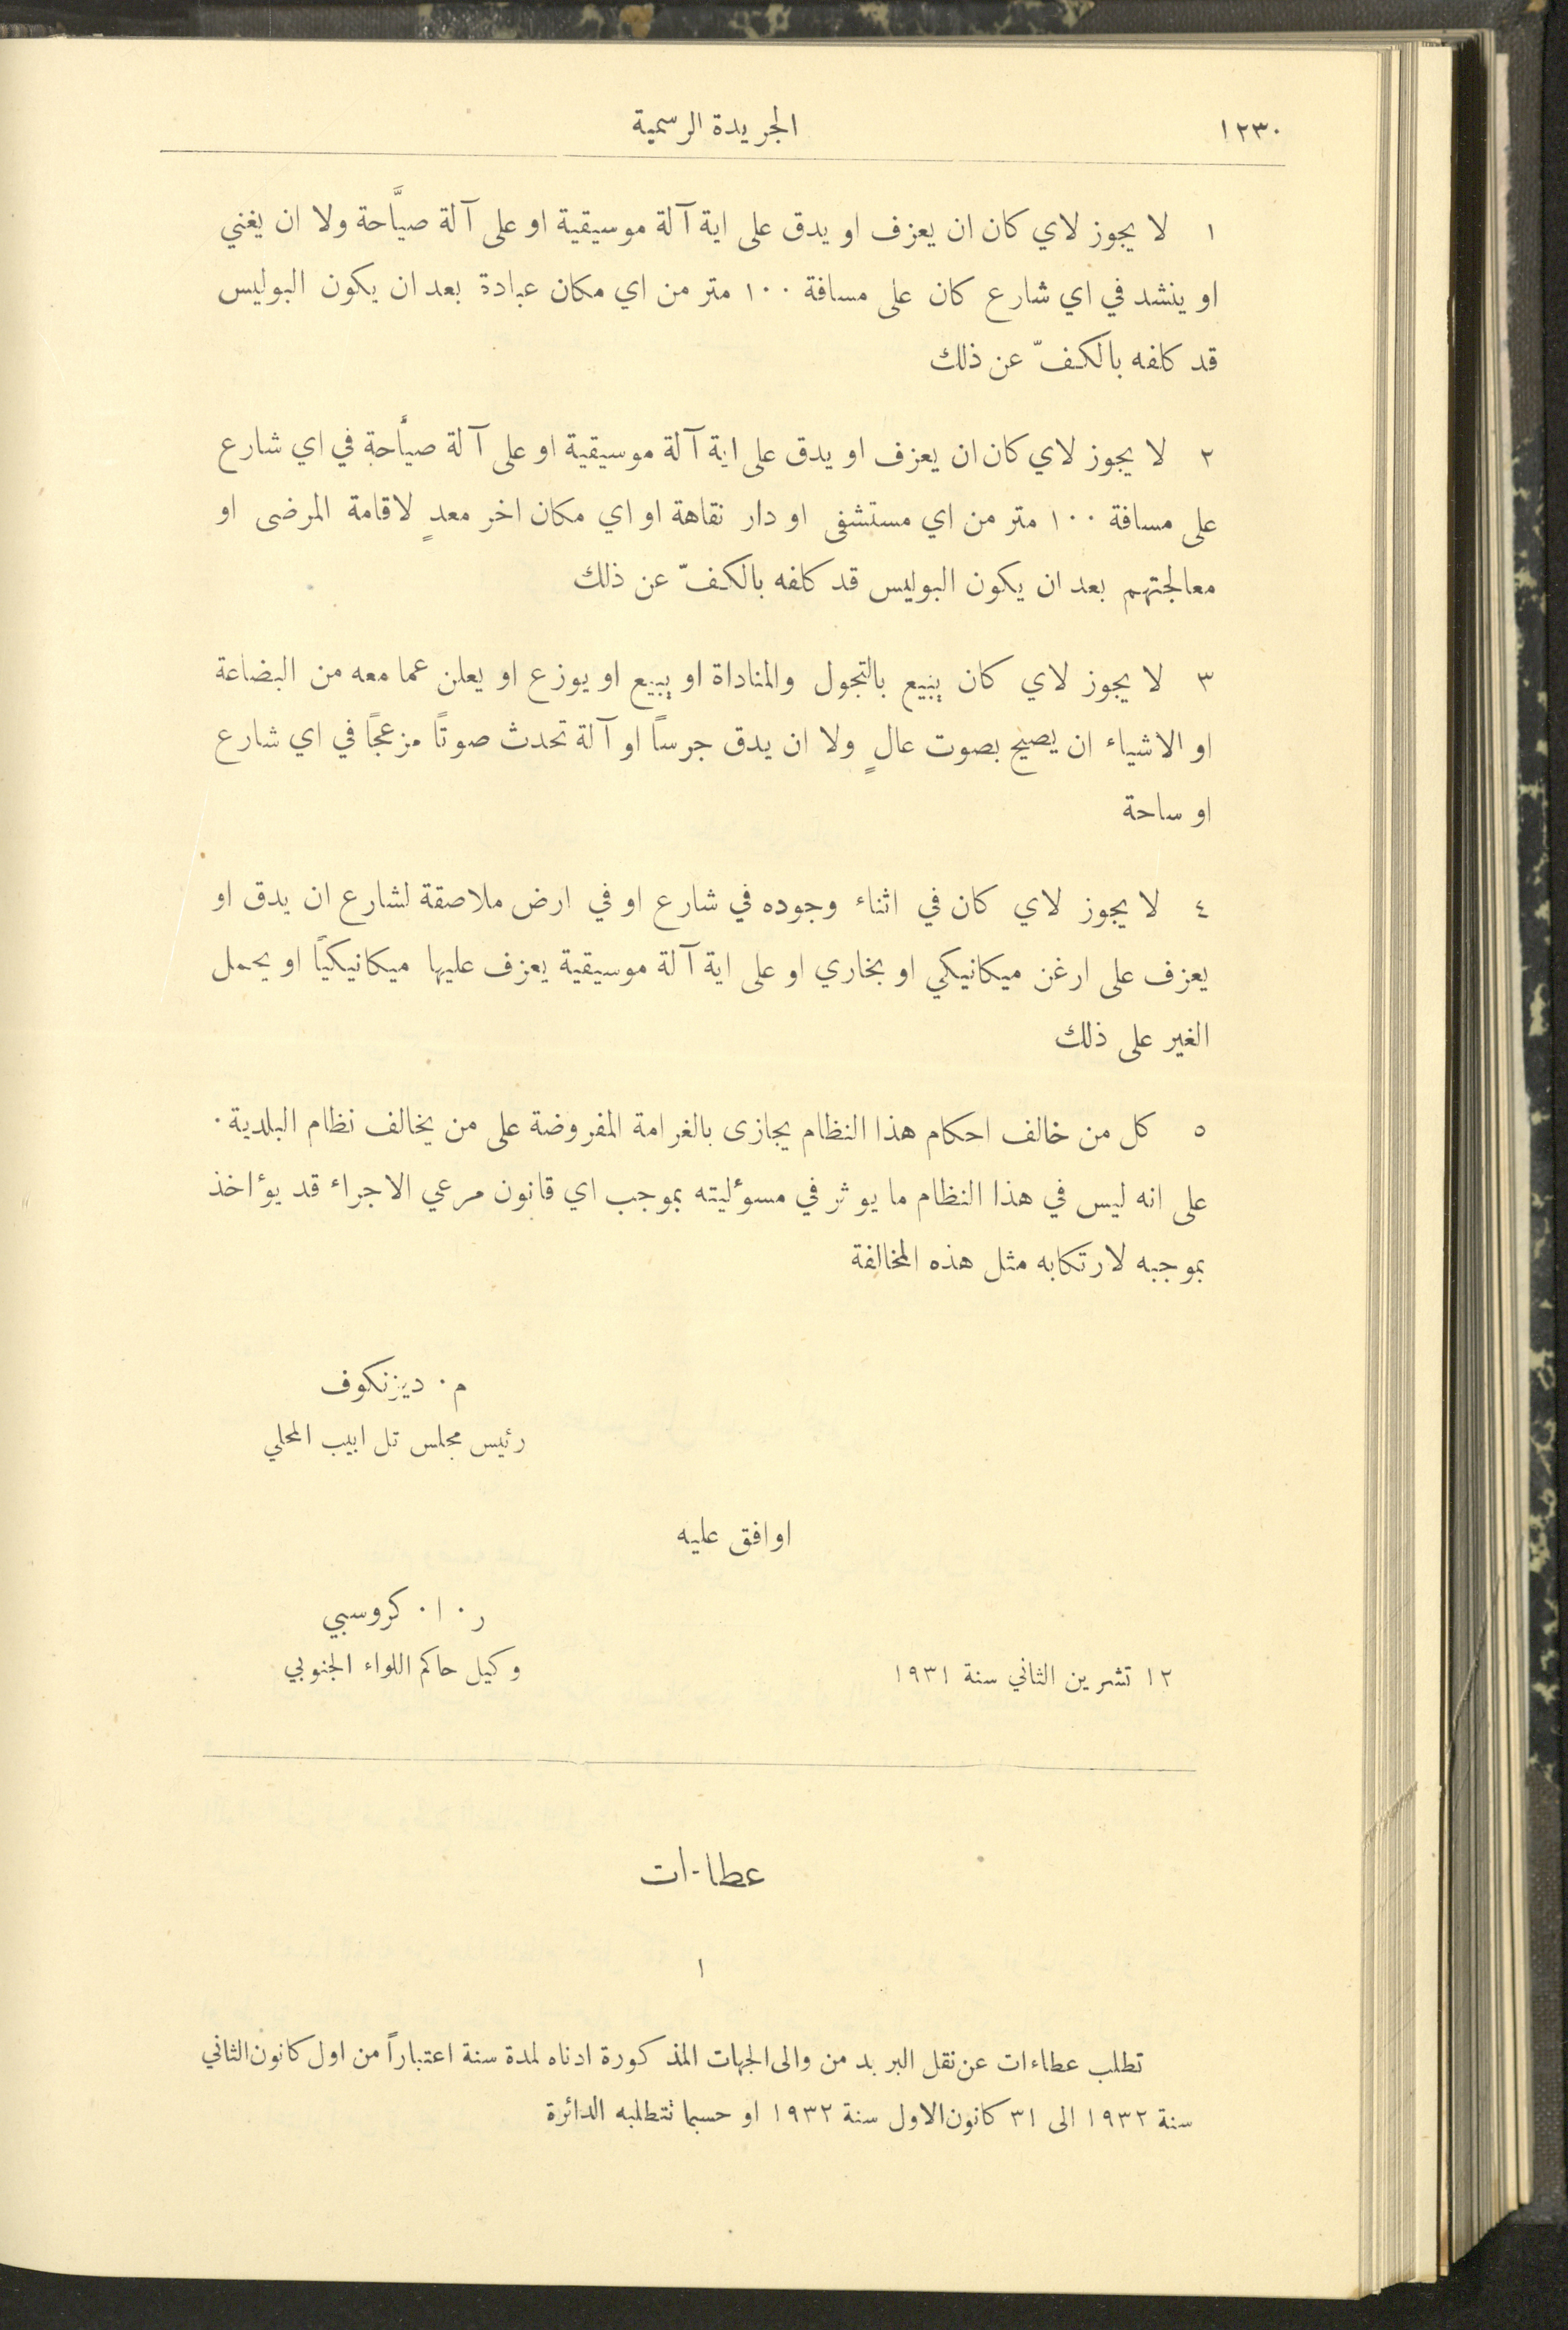 ١٢٣٠
الجريدة الرسمية
١ لا يجوز لاي كان ان يعزف او يدق على اية آلة موسيقية او على آلة صيَّاحة ولا ان يغني
او ينشد في اي شارع كان على مسافة ١٠٠ متر من اي مكان عبادة بعد ان يكون البوليس
قد كلفه بالكفّ عن ذلك
٢ لا يجوز لاي كان ان يعزف او يدق على اية آلة موسيقية او على آلة صيأحة في اي شارع
على مسافة ١٠٠ متر من اي مستشفى او دار نقاهة او اي مكان اخر معدٍ لاقامة المرضى او
معالجتهم بعد ان يكون البوليس قد كلفه بالكفّ عن ذلك
٣ لا يجوز لاي كان يبيع بالتجول والمناداة او يبيع او يوزع او يعلن عما معه من البضاعة
او الاشياء ان يصيح بصوت عالٍ ولا ان يدق جرساً او آلة تحدث صوتاً مزعجاً في اي شارع
او ساحة
٤ لا يجوز لاي كان في اثناء وجوده في شارع او في ارض ملاصقة لشارع ان يدق او
يعزف على ارغن ميكانيكي او بخاري او على اية آلة موسيقية يعزف عليها ميكانيكياً او يحمل
الغير على ذلك
٥ كل من خالف احكام هذا النظام يجازى بالغرامة المفروضة على من يخالف نظام البلدية٠
على انه ليس في هذا النظام ما يوثر في مسوٴليته بموجب اي قانون مرعي الاجراء قد يوٴاخذ
بموجبه لارتكابه مثل هذه المخالفة
م٠ ديزنكوف
رئيس مجلس تل ابيب المحلي
اوافق عليه
ر٠ ا٠ كروسبي
وكيل حاكم اللواء الجنوبي
١٢ تشرين الثاني سنة ١٩٣١
عطاءات
١
تطلب عطاءات عن نقل البريد من والى الجهات المذكورة ادناه لمدة سنة اعتباراً من اول كانون الثاني
سنة ١٩٣٢ الى ٣١ كانون الاول سنة ١٩٣٢ او حسبما تتطلبه الدائرة